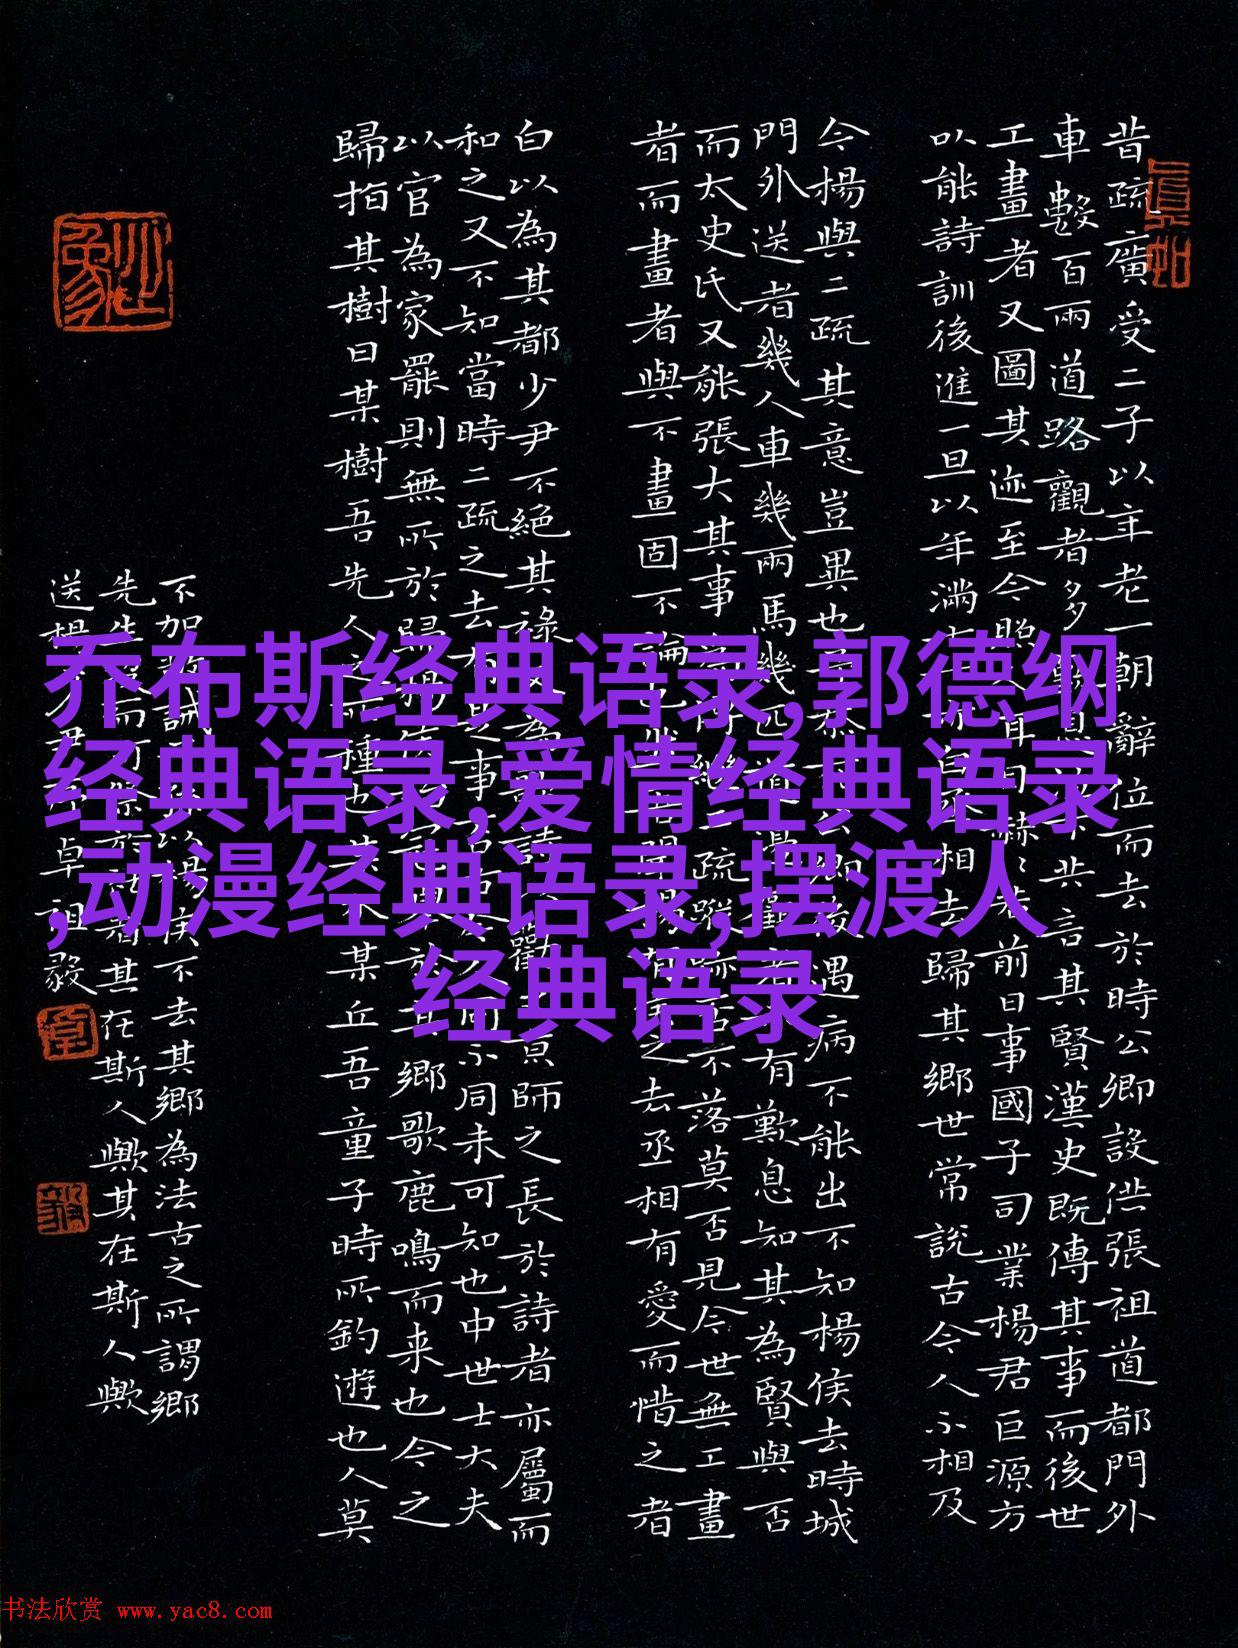 昔疏廣受二子以年老一朝辭位而去於時公卿設供張祖道都門外
車數百兩道路觀者多歎息泣下共言其賢漢史既傳其事而後世
工畫者又圖其迹至今照人耳目赫赫若前日事國子司業楊君巨源方
以能詩訓後進一旦以年滿相去歸其鄉世常說古今人不相及
今楊與二疏其意豈異也遇病不能出不知楊侯去時城
門外送者幾人車幾兩馬幾匹道邊觀者有歎息知其為賢與否
而太史氏又能張大其事二疏蹤跡否不落莫否見今世無工畫
者而畫者與不畫固不論之去丞相有愛而惜之者
白以為其都少尹不絕其祿為詩勸京師之長於詩者亦屬而
和之又不知當時二疏之去有是事同不同未可知也中世士大夫
以官為家罷則無所於歸楊於其鄉歌鹿鳴而来也今之
歸指其樹曰某樹吾先人之所種也某水某丘吾童子時所釣遊也人莫
不加敬誡以楊侯不去其鄉為法古之所謂鄉
先生沒而可祭於社者其在斯人歟其在斯人歟
送楊少尹序卓祖毅
真如
乔布斯经典语录,郭德纲
经典语录,爱情经典语录
,动漫经典语录,摆渡人
经典语录
书法欣赏 www.yac8.com